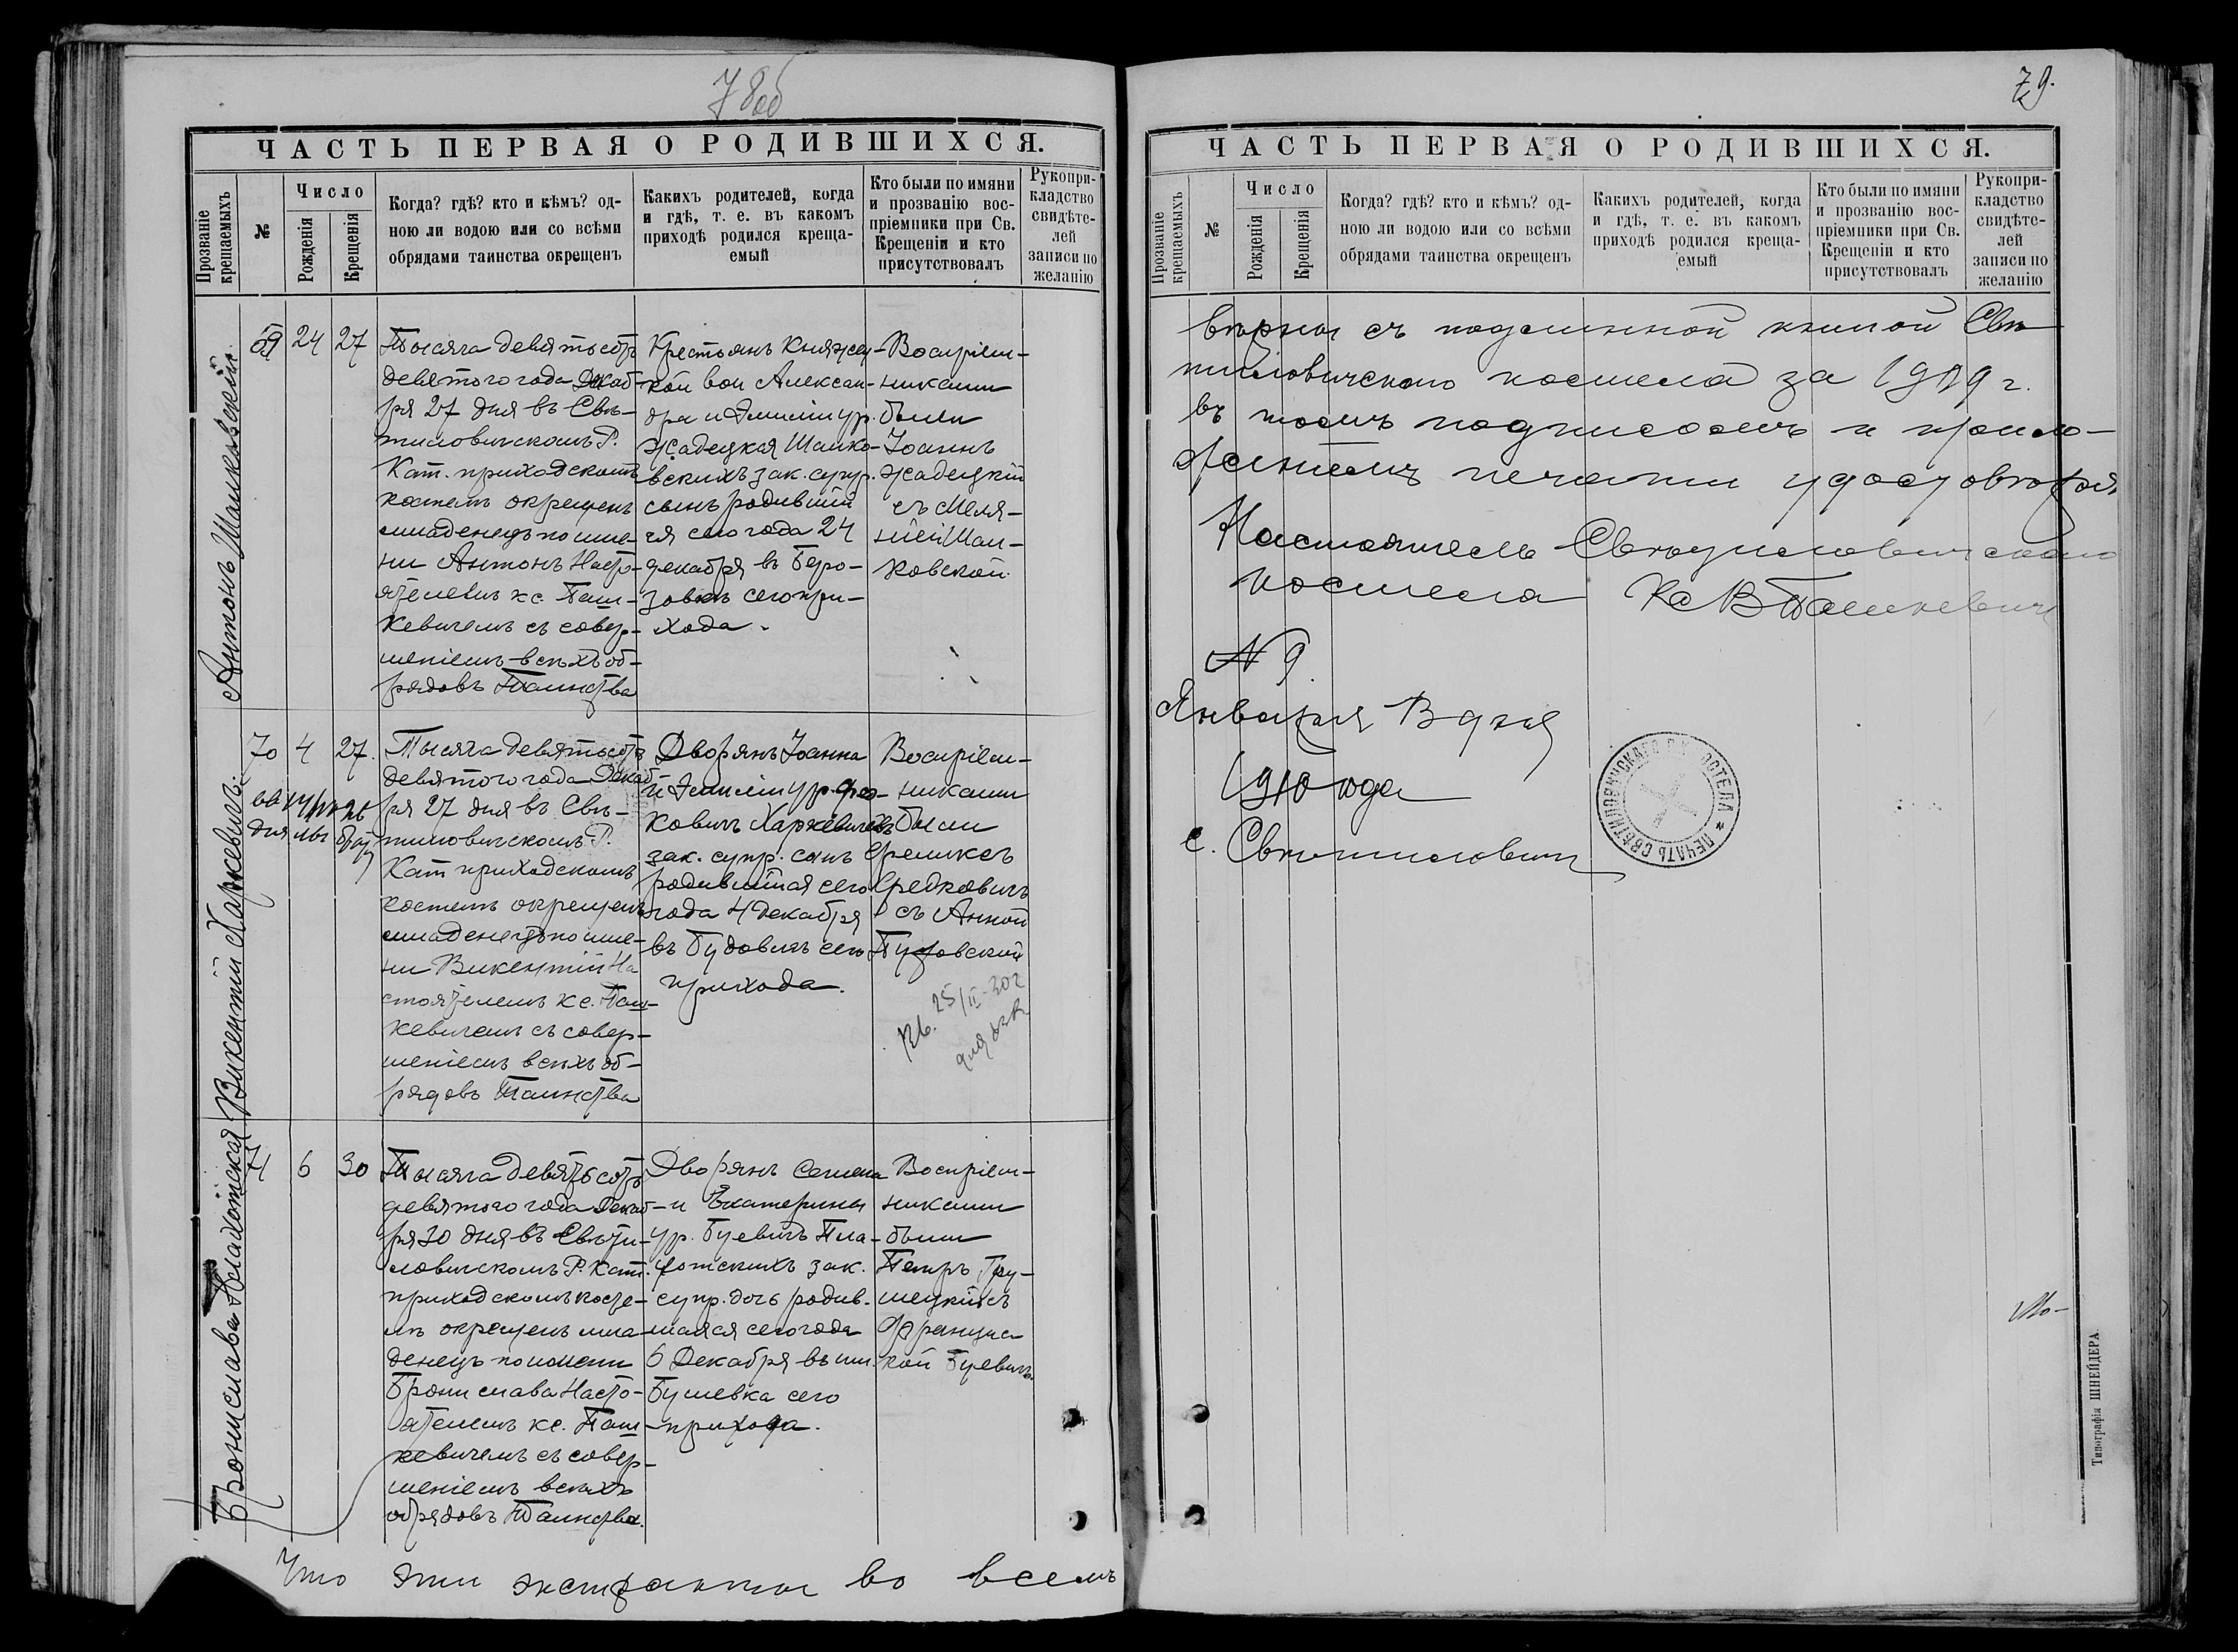 78об
ЧАСТЬ ПЕРВАЯ О РОДИВШИХСЯ.
Прозваніе крещаемыхъ
№
Число
Рожденія
Крещенія
Когда? гдѣ? кто и кѣмъ? од-
ною ли водою или со всѣми
обрядами таинства окрещенъ
Какихъ родителей, когда
и гдѣ, т. е. въ какомъ
приходѣ родился креща-
емый
Кто были по имяни
и прозванію вос-
пріемники при Св.
Крещеніи и кто
присутствовалъ
Рукопри-
кладство
свидѣте-
лей
записи по
желанію
Антонъ Шамковскій.
69
24
27
Тысяча девятьсотъ
девятого года Декаб-
ря 27 дня въ Свѣ-
тиловичскомъ Р.
Кат. приходскомъ
костелѣ окрещенъ
младенецъ по име-
ни Антонъ Насто-
ятелемъ кс. Паш-
кевичемъ съ совер-
шеніемъ всѣхъ об-
рядовъ Таинства
Крестьянъ Княжец-
кой вол Алексан-
дра и Эмиліи ур.
Жадецкая Шамко-
вскихъ зак. супр.
сынъ родившій
ся сего года 24
декабря въ Беро-
зовкѣ сего при-
хода.
Воспріем-
никами
были
Іоаннъ
Жадецкій
съ Меля-
ніей Шам-
ковской.
Викентій Харкевичъ.
70
4
27.
Тысяча девятьсотъ
девятого года Декаб-
ря 27 дня въ Свѣ-
тиловичскомъ Р.
Кат приходскомъ
костелѣ окрещенъ
младенецъ по име-
ни Викентій На
стоятелемъ кс. Паш-
кевичемъ съ совер-
шеніемъ всѣхъ об-
рядовъ Таинства
Дворянъ Іоанна
и Эмиліи ур.
ковичъ Харкевичевъ
зак. супр. сынъ
родившійся сего
года 4 декабря
въ Будовлѣ сего
прихода.
Воспріем-
никами
были
Феликсъ
Федковичъ
съ Анной
25/II-30г
Бронислава Плахотская
71
6
30
Тысяча девятьсотъ
девятого года Декаб-
ря 30 дня въ Свѣти-
ловичскомъ Р. Кат.
приходскомъ косте-
лѣ окрещенъ мла-
денецъ по имени
Бронислава Насто-
ятелемъ кс. Паш-
кевичемъ съ совер-
шеніемъ всѣхъ
обрядовъ Таинства.
Дворянъ Семена
и Екатерины
ур. Буевичъ Пла-
хотскихъ зак.
супр. дочь родив-
шаяся сего года
6 Декабря въ им.
Бушевка сего
прихода.
Воспріем-
никами
были
Петръ Гру-
шецкій съ
Францис
кой Буевичъ.
Что эти экстракты во всемъ
79.
ЧАСТЬ ПЕРВАЯ О РОДИВШИХСЯ.
Прозваніе крещаемыхъ
№
Число
Рожденія
Крещенія
Когда? гдѣ? кто и кѣмъ? од-
ною ли водою или со всѣми
обрядами таинства окрещенъ
Какихъ родителей, когда
и гдѣ, т. е. въ какомъ
приходѣ родился креща-
емый
Кто были по имяни
и прозванію вос-
пріемники при Св.
Крещеніи и кто
присутствовалъ
Рукопри-
кладство
свидѣте-
лей
записи по
желанію
вѣрны съ подлинной книгой Свѣ
тиловичскаго костела за 1909 г.
въ томъ подписомъ и прило-
женіемъ печати удостовѣряю
Настоятель Свѣтиловичскаго
костела Кс В Пашкевичъ
№ 9
Января дня
1910 года
с. Свѣтиловичи
ПЕЧАТЬ СВѢТИЛОВИЧСКАГО Р. К. КОСТЕЛА *
Типографія ШНЕЙДЕРА.